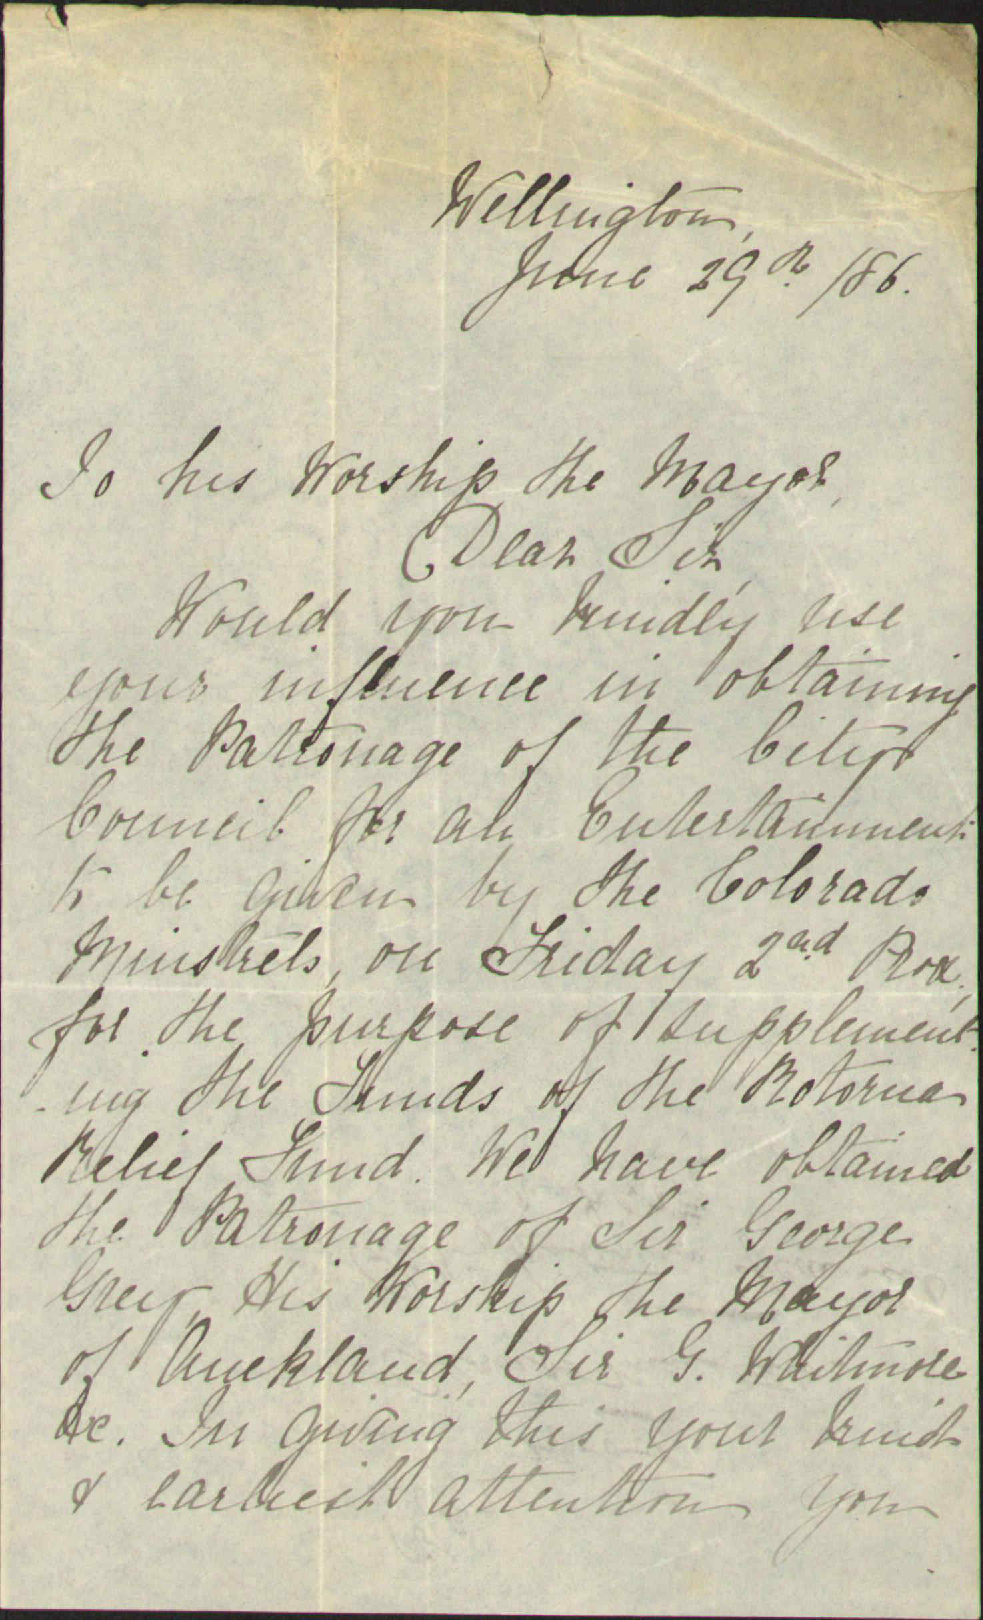 Wellington,
June 29th /86.
To his Worship the Mayor,
Dear Sir,
Would you kindly use
your influence in obtaining
the Patronage of the City
Council for an Entertainment
to be given by the Colorado
Minstrels, on Friday 2nd Prox,
for the purpose of supplement
-ing the Funds of the Rotorua
Relief Fund. We have obtained
the Patronage of Sir George
Grey, His Worship the Mayor
of Auckland, Sir G. Whitmore
&c. In giving this your kind
& earliest attention you